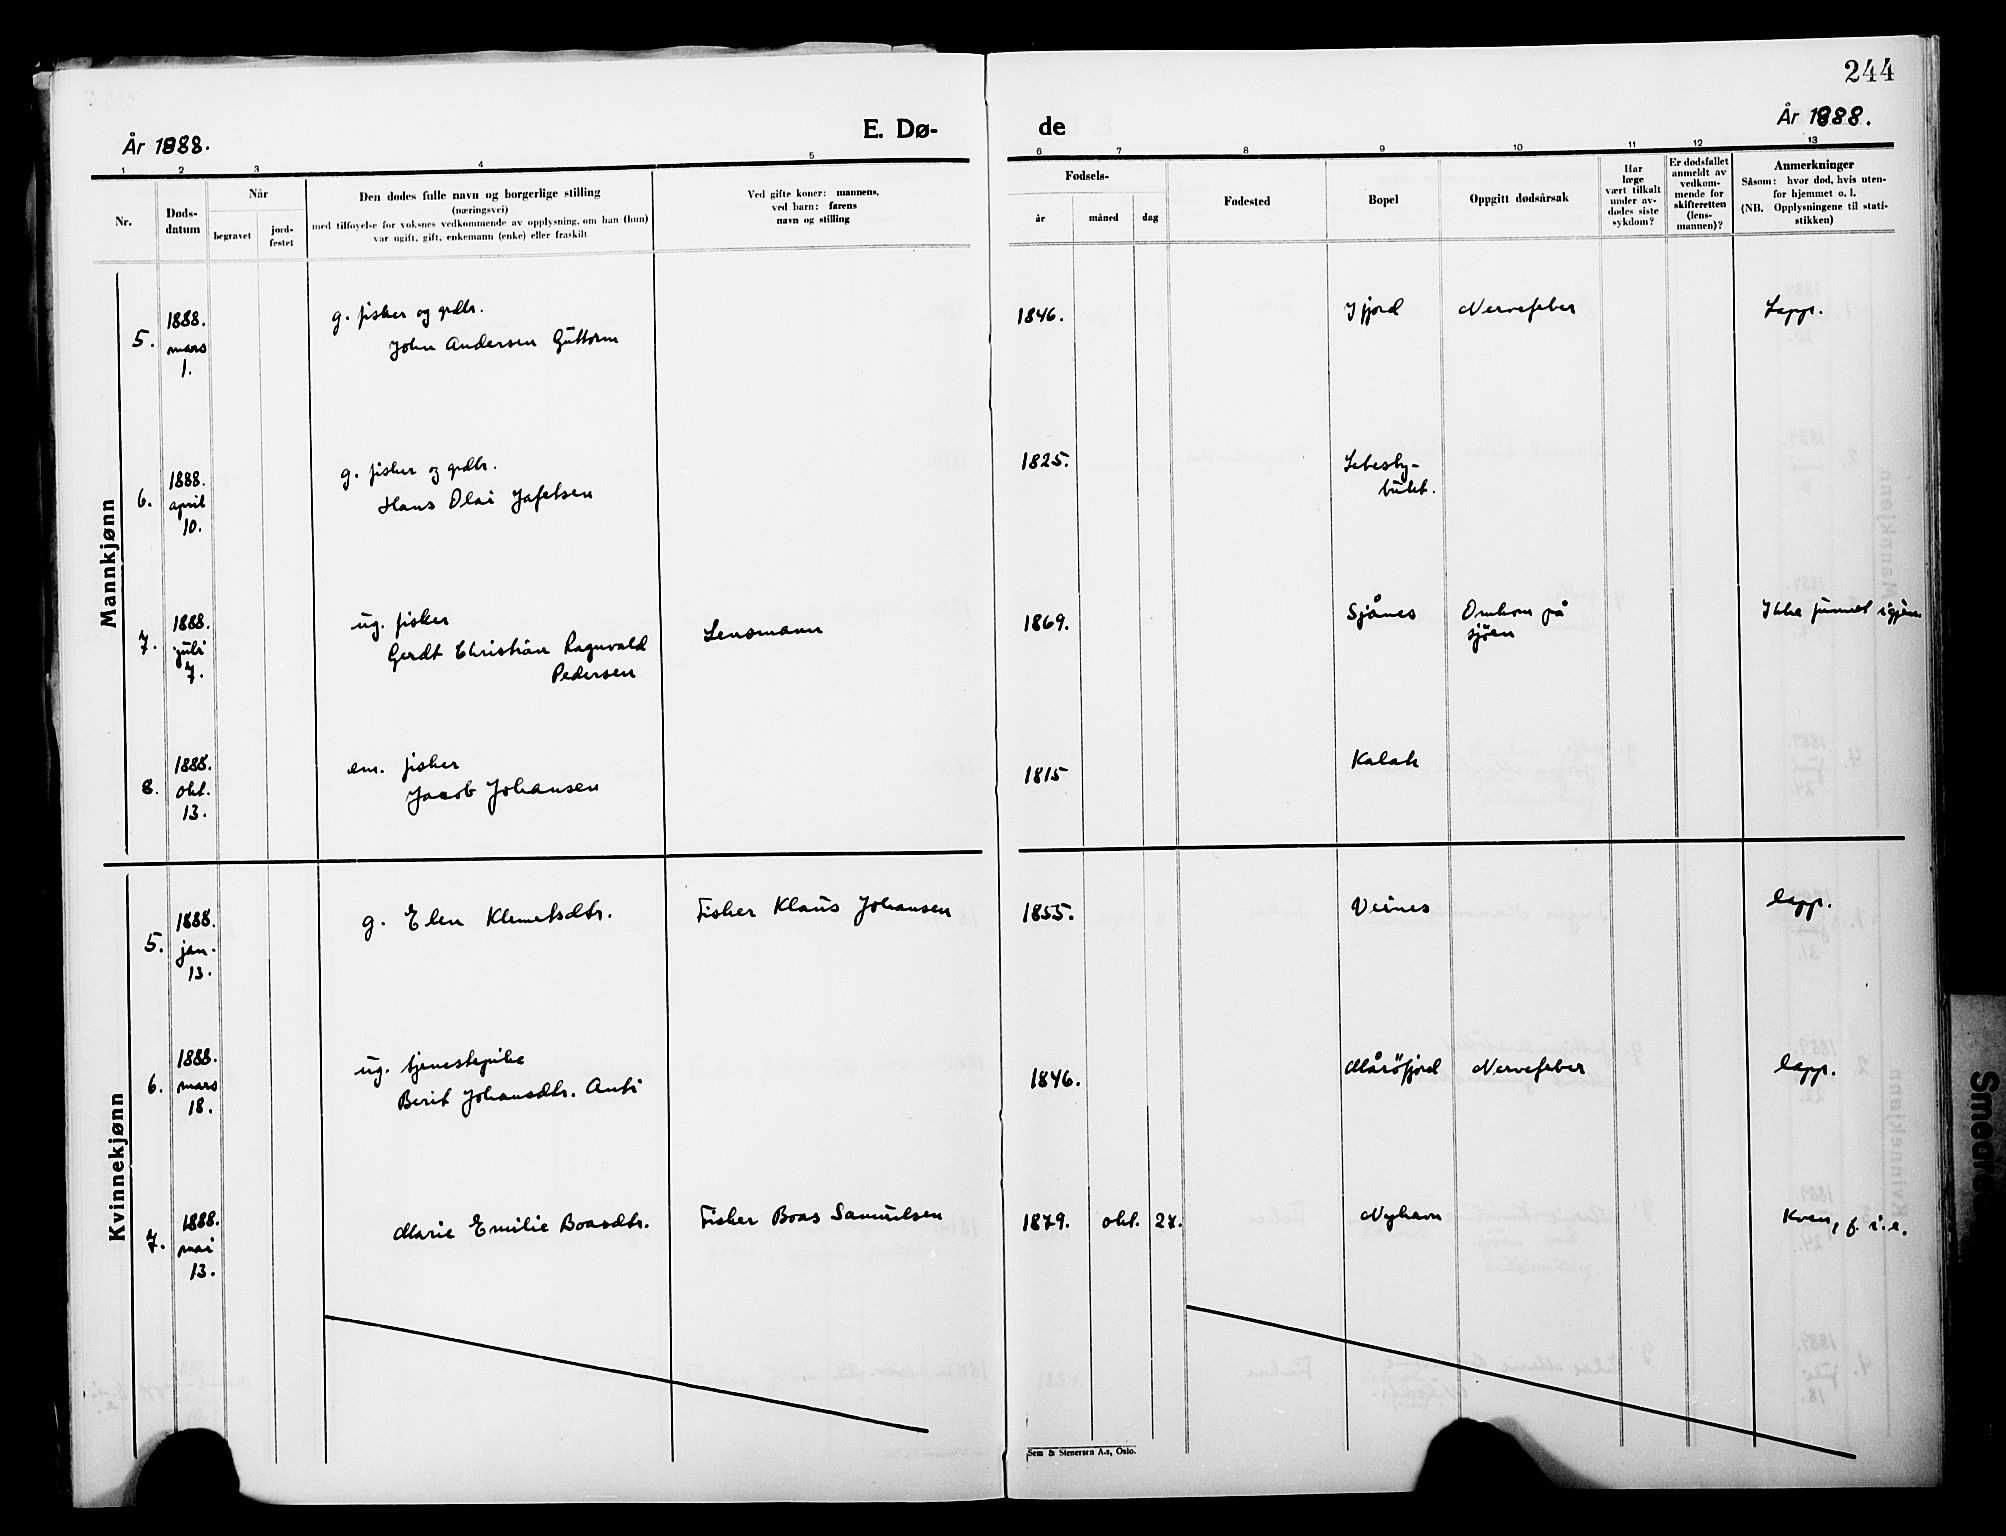 244
År 1888.
E. Dø-
de
År 1888.
1 2 3 4 5 6 7 8 9 10 11 12 13
Nr.
Døds-
datum
Når
begravet
jord-
festet
Den dødes fulle navn og borgerlige stilling
(næringsvei)
med tilføyelse for voksnes vedkommende av opplysning, om han (hun)
var ugift, gift, enkemann (enke) eller fraskilt
Ved gifte koner: mannens,
ved barn: farens
navn og stilling
Fødsels-
år
måned
dag
Fødested
Bopel
Oppgitt dødsårsak
Har
læge
vært tilkalt
under av-
dødes siste
sykdom?
Er dødsfallet
anmeldt av
vedkom-
mende for
skifteretten
(lens-
mannen)?
Anmerkninger
Såsom: hvor død, hvis uten-
for hjemmet o. l.
(NB. Opplysningene til stati-
stikken)
Mannkjønn
5.
1888.
mars
1.
g. fisker og grdbr.
John Andersen Guttorm
1846.
Ifjord
Nervefeber
Lapp.
6.
1888.
april
10.
g. fisker og grdbr.
Hans Olai Jafetsen
1825.
Lebesby-
bukt.
7.
1888.
juli
7.
ug. fisker
Gerdt Christian Ragnvald
Pedersen
Lensmann
1869.
Sjånes
Omkom på
sjöen
Ikke funnet igjen
8.
1888.
okt.
13.
em. fisker
Jacob Johansen
1815
Kalak
Kvinnekjønn
5.
1888.
jan.
13.
g. Elen Klemetsdtr.
Fisker Klaus Johansen
1855.
Veines
lapp.
6.
1888.
mars
18.
ug. tjenestepike
Berit Johansdtr. Anti
1846.
Måröfjord
Nervefeber
lapp.
7.
1888.
mai
13.
Marie Emilie Boasdtr.
Fisker Boas Samuelsen
1879.
okt.
27.
Nyhavn
Kven, f. i. e.
Sem & Stenersen A.s, Oslo.